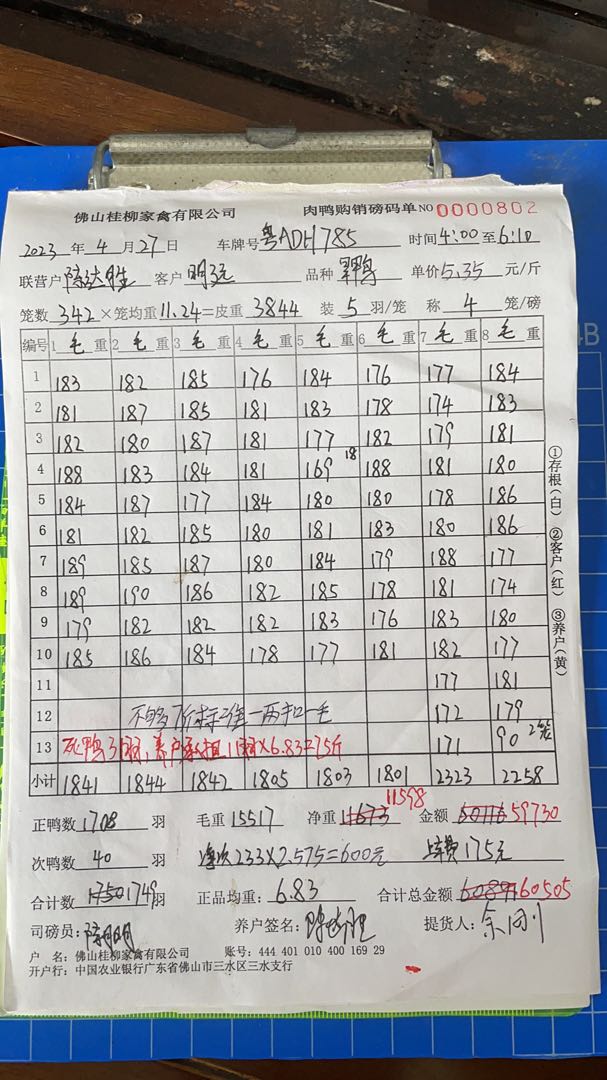 佛山桂柳家禽有限公司 肉鸭购销磅码单 NO 0000802
2023 年 4 月 27 日 车牌号 粤ADH785 时间 4:00 至 6:10
联营户 陈达胜 客户 明记 品种 单价 5.35 元/斤
笼数 342 × 笼均重 11.24 = 皮重 3844 装 5 羽/笼 称 4 笼/磅
编号 1 毛 重 2 毛 重 3 毛 重 4 毛 重 5 毛 重 6 毛 重 7 毛 重 8 毛 重
1 183 182 185 176 184 176 177 184
2 181 187 185 181 183 178 174 183
3 182 180 187 181 177 182 179 181
4 188 183 184 181 169 18 188 181 180
5 184 187 177 184 180 180 178 186
6 181 182 185 180 181 183 180 186
7 189 185 187 180 184 179 188 177
8 189 190 186 182 185 178 181 174
9 179 182 182 182 183 176 183 180
10 185 186 184 178 177 181 182 177
11 177 181
12 不够 标准一两扣一毛 172 179
13 死鸭31羽,养户承担11羽×6.83=75斤 171 90 2笼
小计 1841 1844 1842 1805 1803 1801 2323 2258
11598
正鸭数 1708 羽 毛重 15517 净重 11673 金额 60116 59730
次鸭数 40 羽 233×2.575=600元 175元
合计数 1750 1749 羽 正品均重: 6.83 合计总金额 60891 60505
司磅员: 养户签名: 提货人:
户 名: 佛山桂柳家禽有限公司 账号: 444 401 010 400 169 29
开户行: 中国农业银行广东省佛山市三水区三水支行
①存根(白) ②客户(红) ③养户(黄)